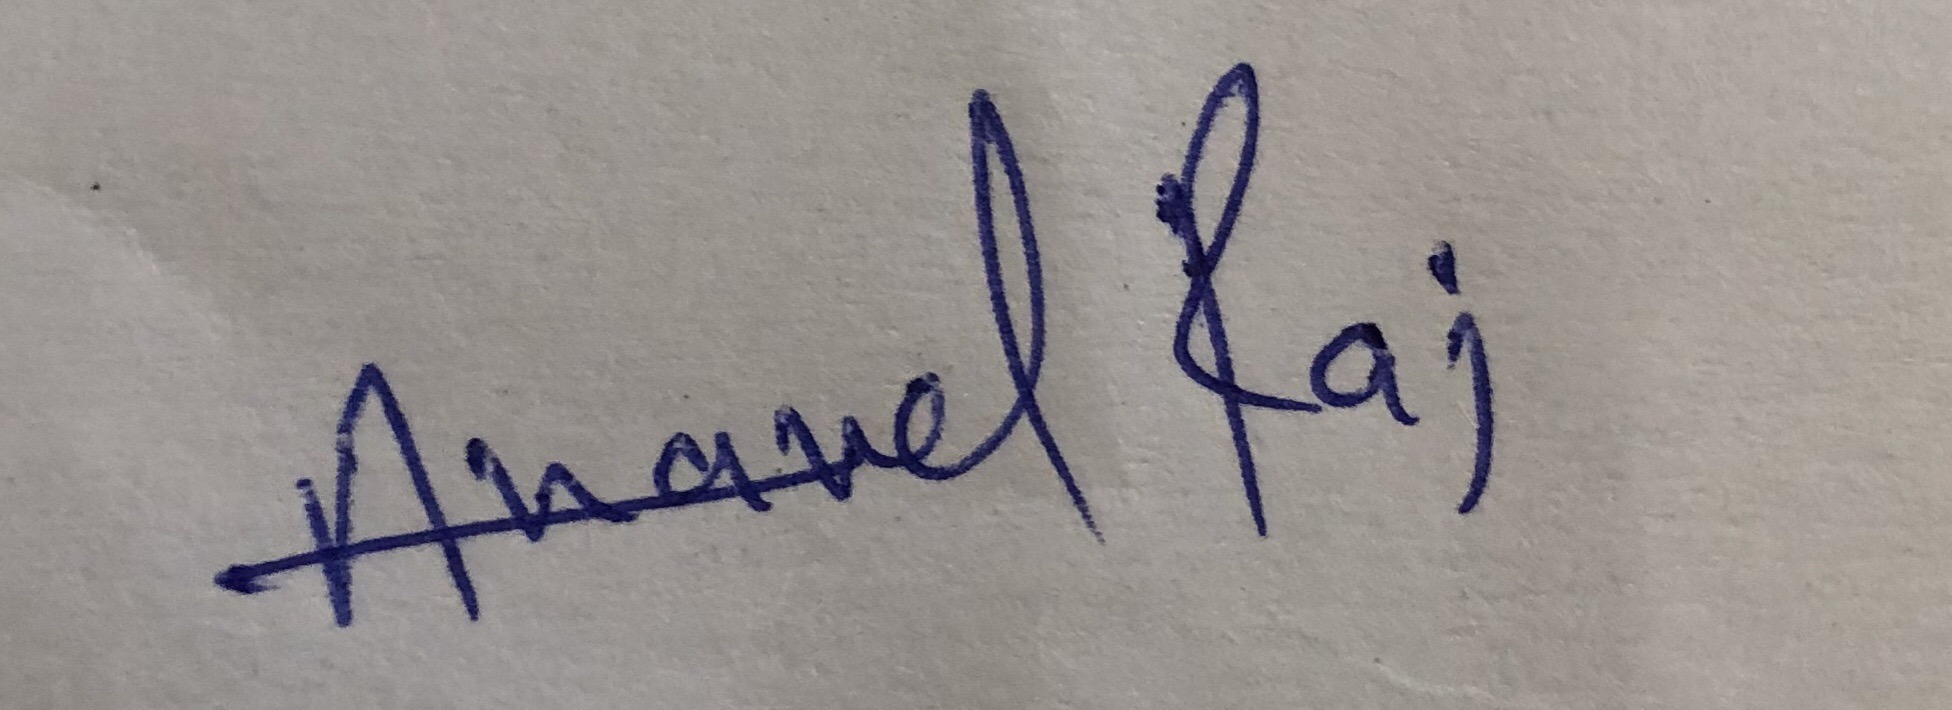 Anand Raj